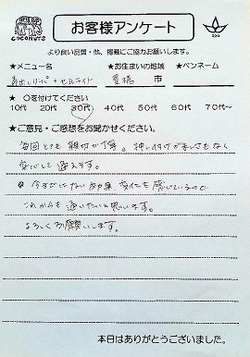 COCONUTS
お客様アンケート
spa
より良い品質・他、掲載にご協力お願いします。
★メニュー名 ★お住まいの地域 ★ペンネーム
豊橋 市
★ ○を付けてください
10代 20代 30代 40代 50代 60代 70代〜
★ご意見・ご感想をお聞かせください。
毎回とても親切丁寧。押し付けがましさもなく
安心して通えます。
今までにない効果、変化を感じているので
これからも通いたいと思います。
よろしくお願いします。
本日はありがとうございました。